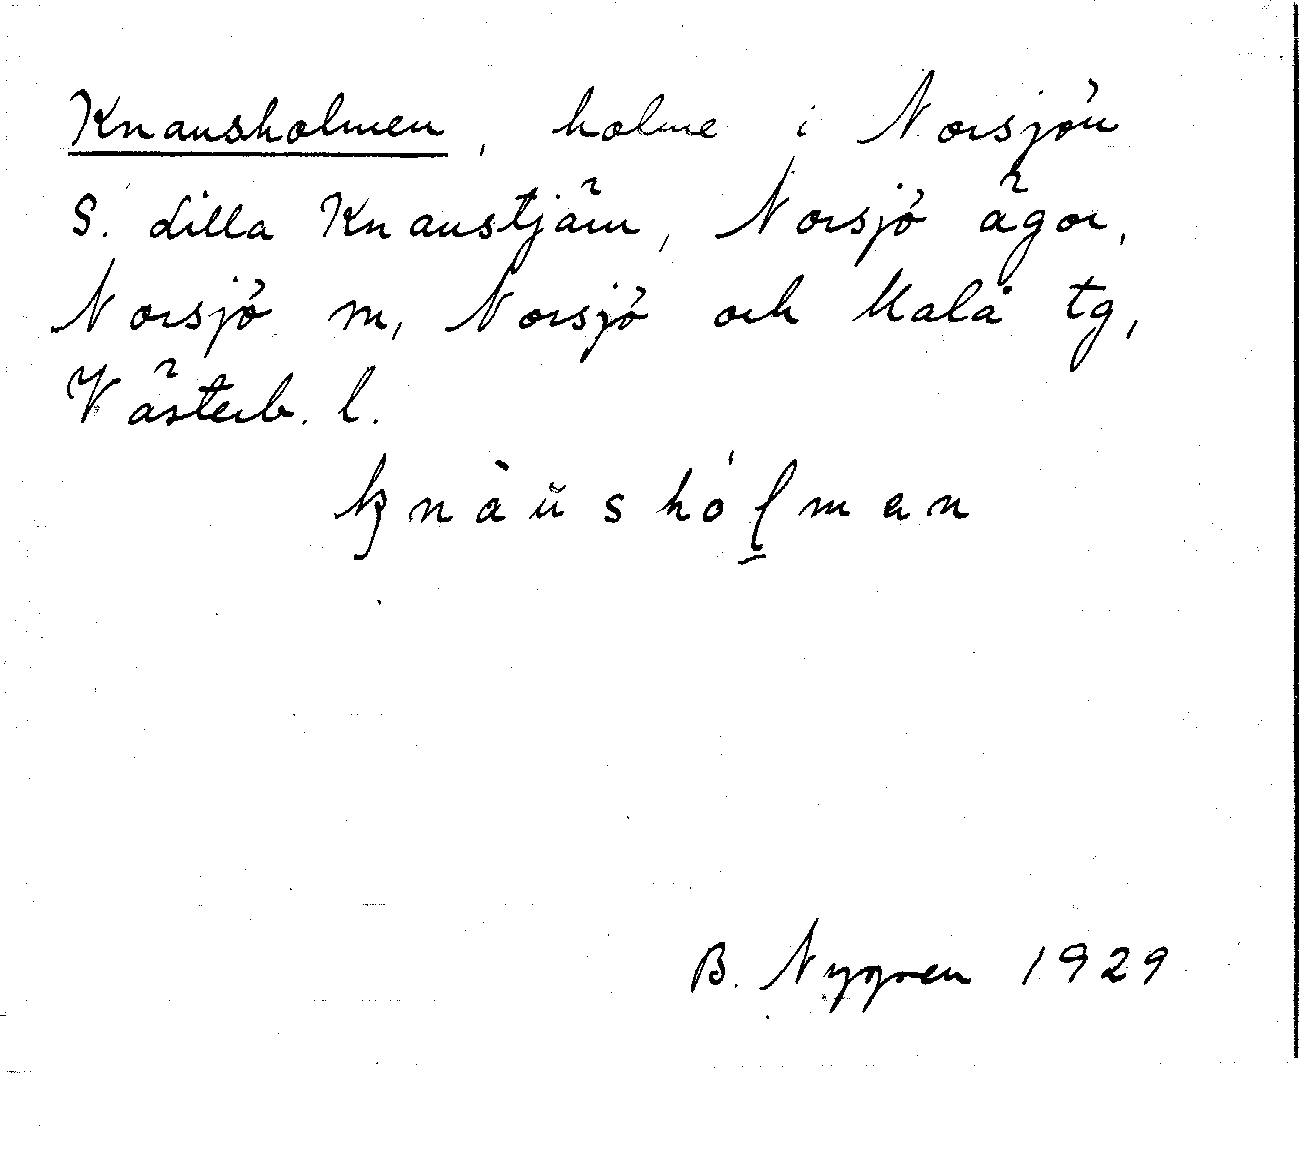 Knausholmen, holme i Norsjön
S. Lilla Knaustjärn, Norsjö ägor,
Norsjö m, Norsjö och Malå tg,
Västerb. l.
knàŭshólman
B. Nygren 1929